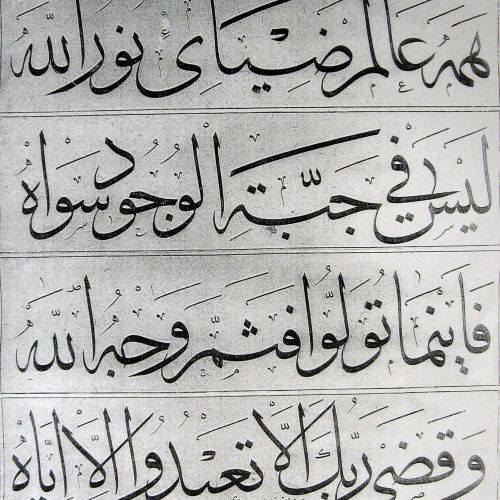 همه عالم ضیای نور الله
لیس فی جبة الوجود سواه
فاینما تولوا فثم وجه الله
وقضی ربك الا تعبدوا الا ایاه